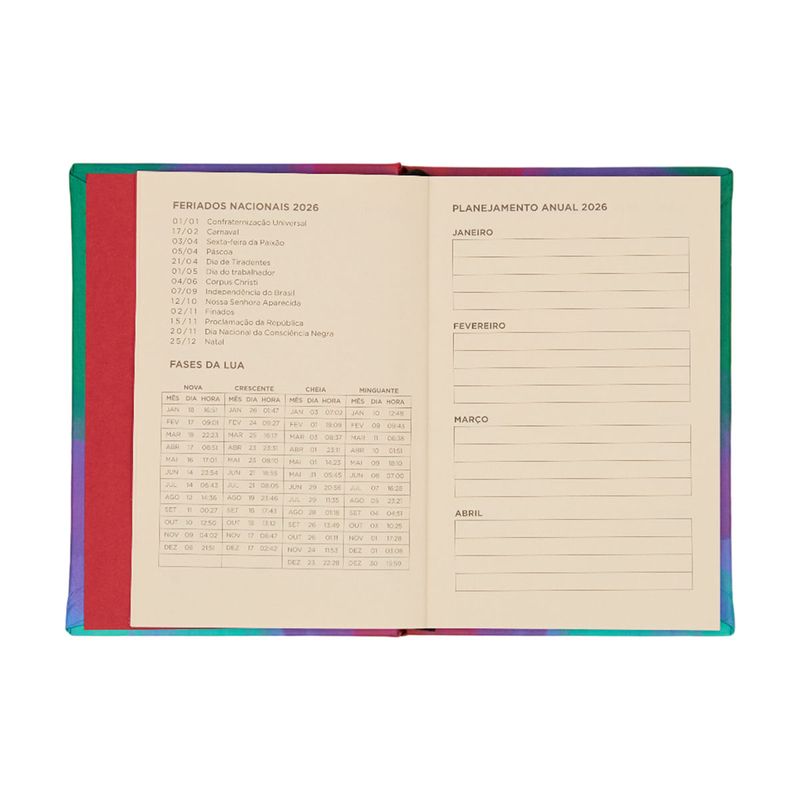 FERIADOS NACIONAIS 2026
01/01 Confraternização Universal
17/02 Carnaval
03/04 Sexta-feira da Paixão
05/04 Páscoa
21/04 Dia de Tiradentes
01/05 Dia do trabalhador
04/06 Corpus Christi
07/09 Independência do Brasil
12/10 Nossa Senhora Aparecida
02/11 Finados
15/11 Proclamação da República
20/11 Dia Nacional da Consciência Negra
25/12 Natal
FASES DA LUA
NOVA CRESCENTE CHEIA MINGUANTE
MÊS DIA HORA MÊS DIA HORA MÊS DIA HORA MÊS DIA HORA
JAN 18 16:51 JAN 26 01:47 JAN 03 07:02 JAN 10 12:48
FEV 17 09:01 FEV 24 09:27 FEV 01 19:09 FEV 09 09:43
MAR 18 22:23 MAR 25 16:17 MAR 03 08:37 MAR 11 06:38
ABR 17 08:51 ABR 23 23:31 ABR 01 23:11 ABR 10 01:51
MAI 16 17:01 MAI 23 08:10 MAI 01 14:23 MAI 09 18:10
JUN 14 23:54 JUN 21 18:55 MAI 31 05:45 JUN 08 07:00
JUL 14 06:43 JUL 21 08:05 JUN 29 20:56 JUL 07 16:28
AGO 12 14:36 AGO 19 23:46 JUL 29 11:35 AGO 05 23:21
SET 11 00:27 SET 18 17:43 AGO 28 01:18 SET 04 04:51
OUT 10 12:50 OUT 18 13:12 SET 26 13:49 OUT 03 10:25
NOV 09 04:02 NOV 17 08:47 OUT 26 01:11 NOV 01 17:28
DEZ 08 21:51 DEZ 17 02:42 NOV 24 11:53 DEZ 01 03:08
DEZ 23 22:28 DEZ 30 15:59
PLANEJAMENTO ANUAL 2026
JANEIRO
FEVEREIRO
MARÇO
ABRIL